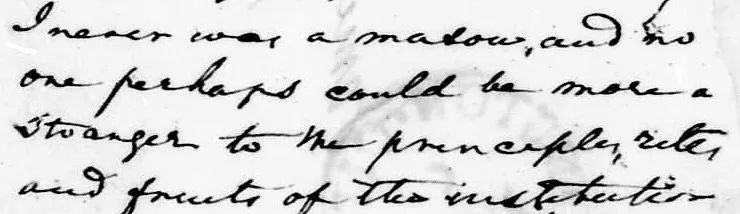 I never was a mason, and no
one perhaps could be more a
stranger to the principles, rites
and fruits of the institution